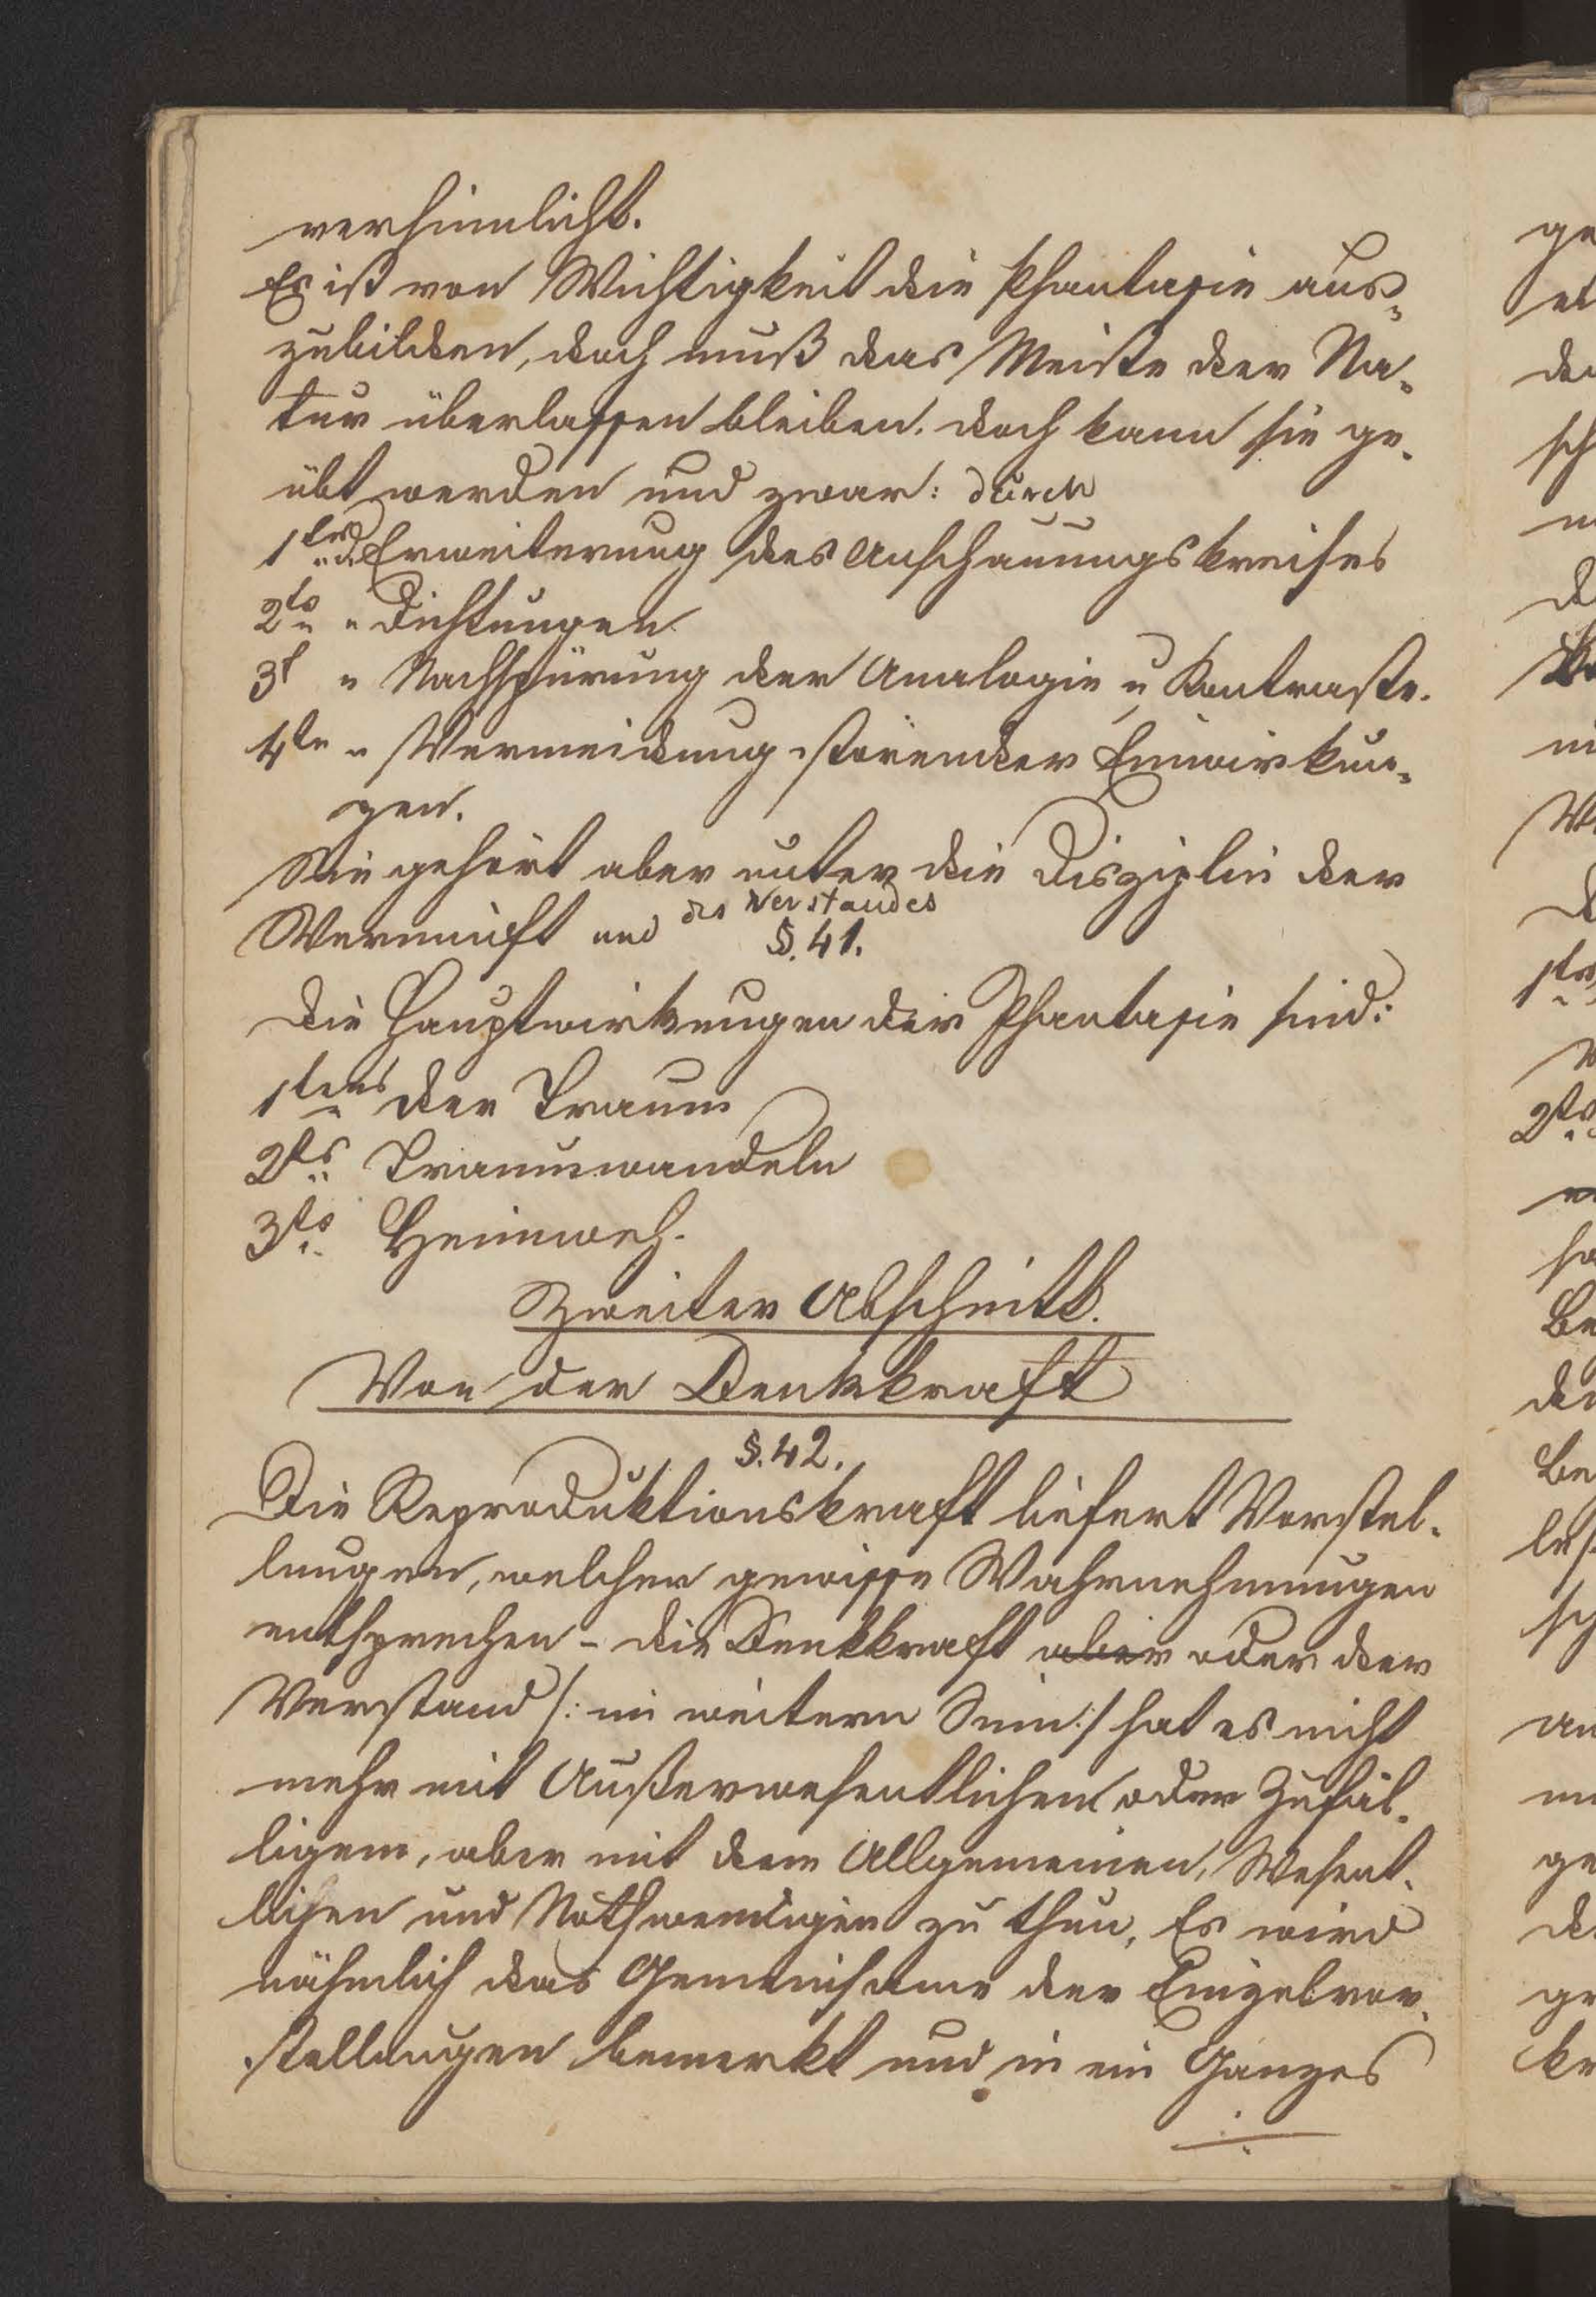 versinnlicht.
Es ist von Wichtigkeit die Phantasie aus-
zubilden, doch muß das Meiste der Na-
tur überlassen bleiben. doch kann sie ge-
übt werden und zwar: durch
1tens d. Erweiterung des Anschauungskreises
2ts " Dichtungen
3t " Nachspürung der Analogie u Kontraste.
4tn " Vermeidung störender Einwirkun-
gen.
Sie gehört aber unter die Disziplin der
Vernunft und des Verstandes
§. 41.
Die Hauptwirkungen der Phantasie sind:
1tens der Traum
2ts Traumwandeln
3ts Heimweh.
Zweiter Abschnitt.
Von der Denkkraft
§. 42.
Die Reproduktionskraft liefert Vorstel-
lungen, welchen gewisse Wahrnehmungen
entsprechen - die Denkkraft aber oder der
Verstand /: im weitern Sinn :/ hat es nicht
mehr mit Außerwesentlichen oder Zufäl-
ligem, aber mit dem Allgemeinen, Wesent-
lichen und Nothwendigen zu thun. Es wird
nähmlich das Gemeinsame der Einzelvor-
stellungen bemerkt und in ein Ganzes